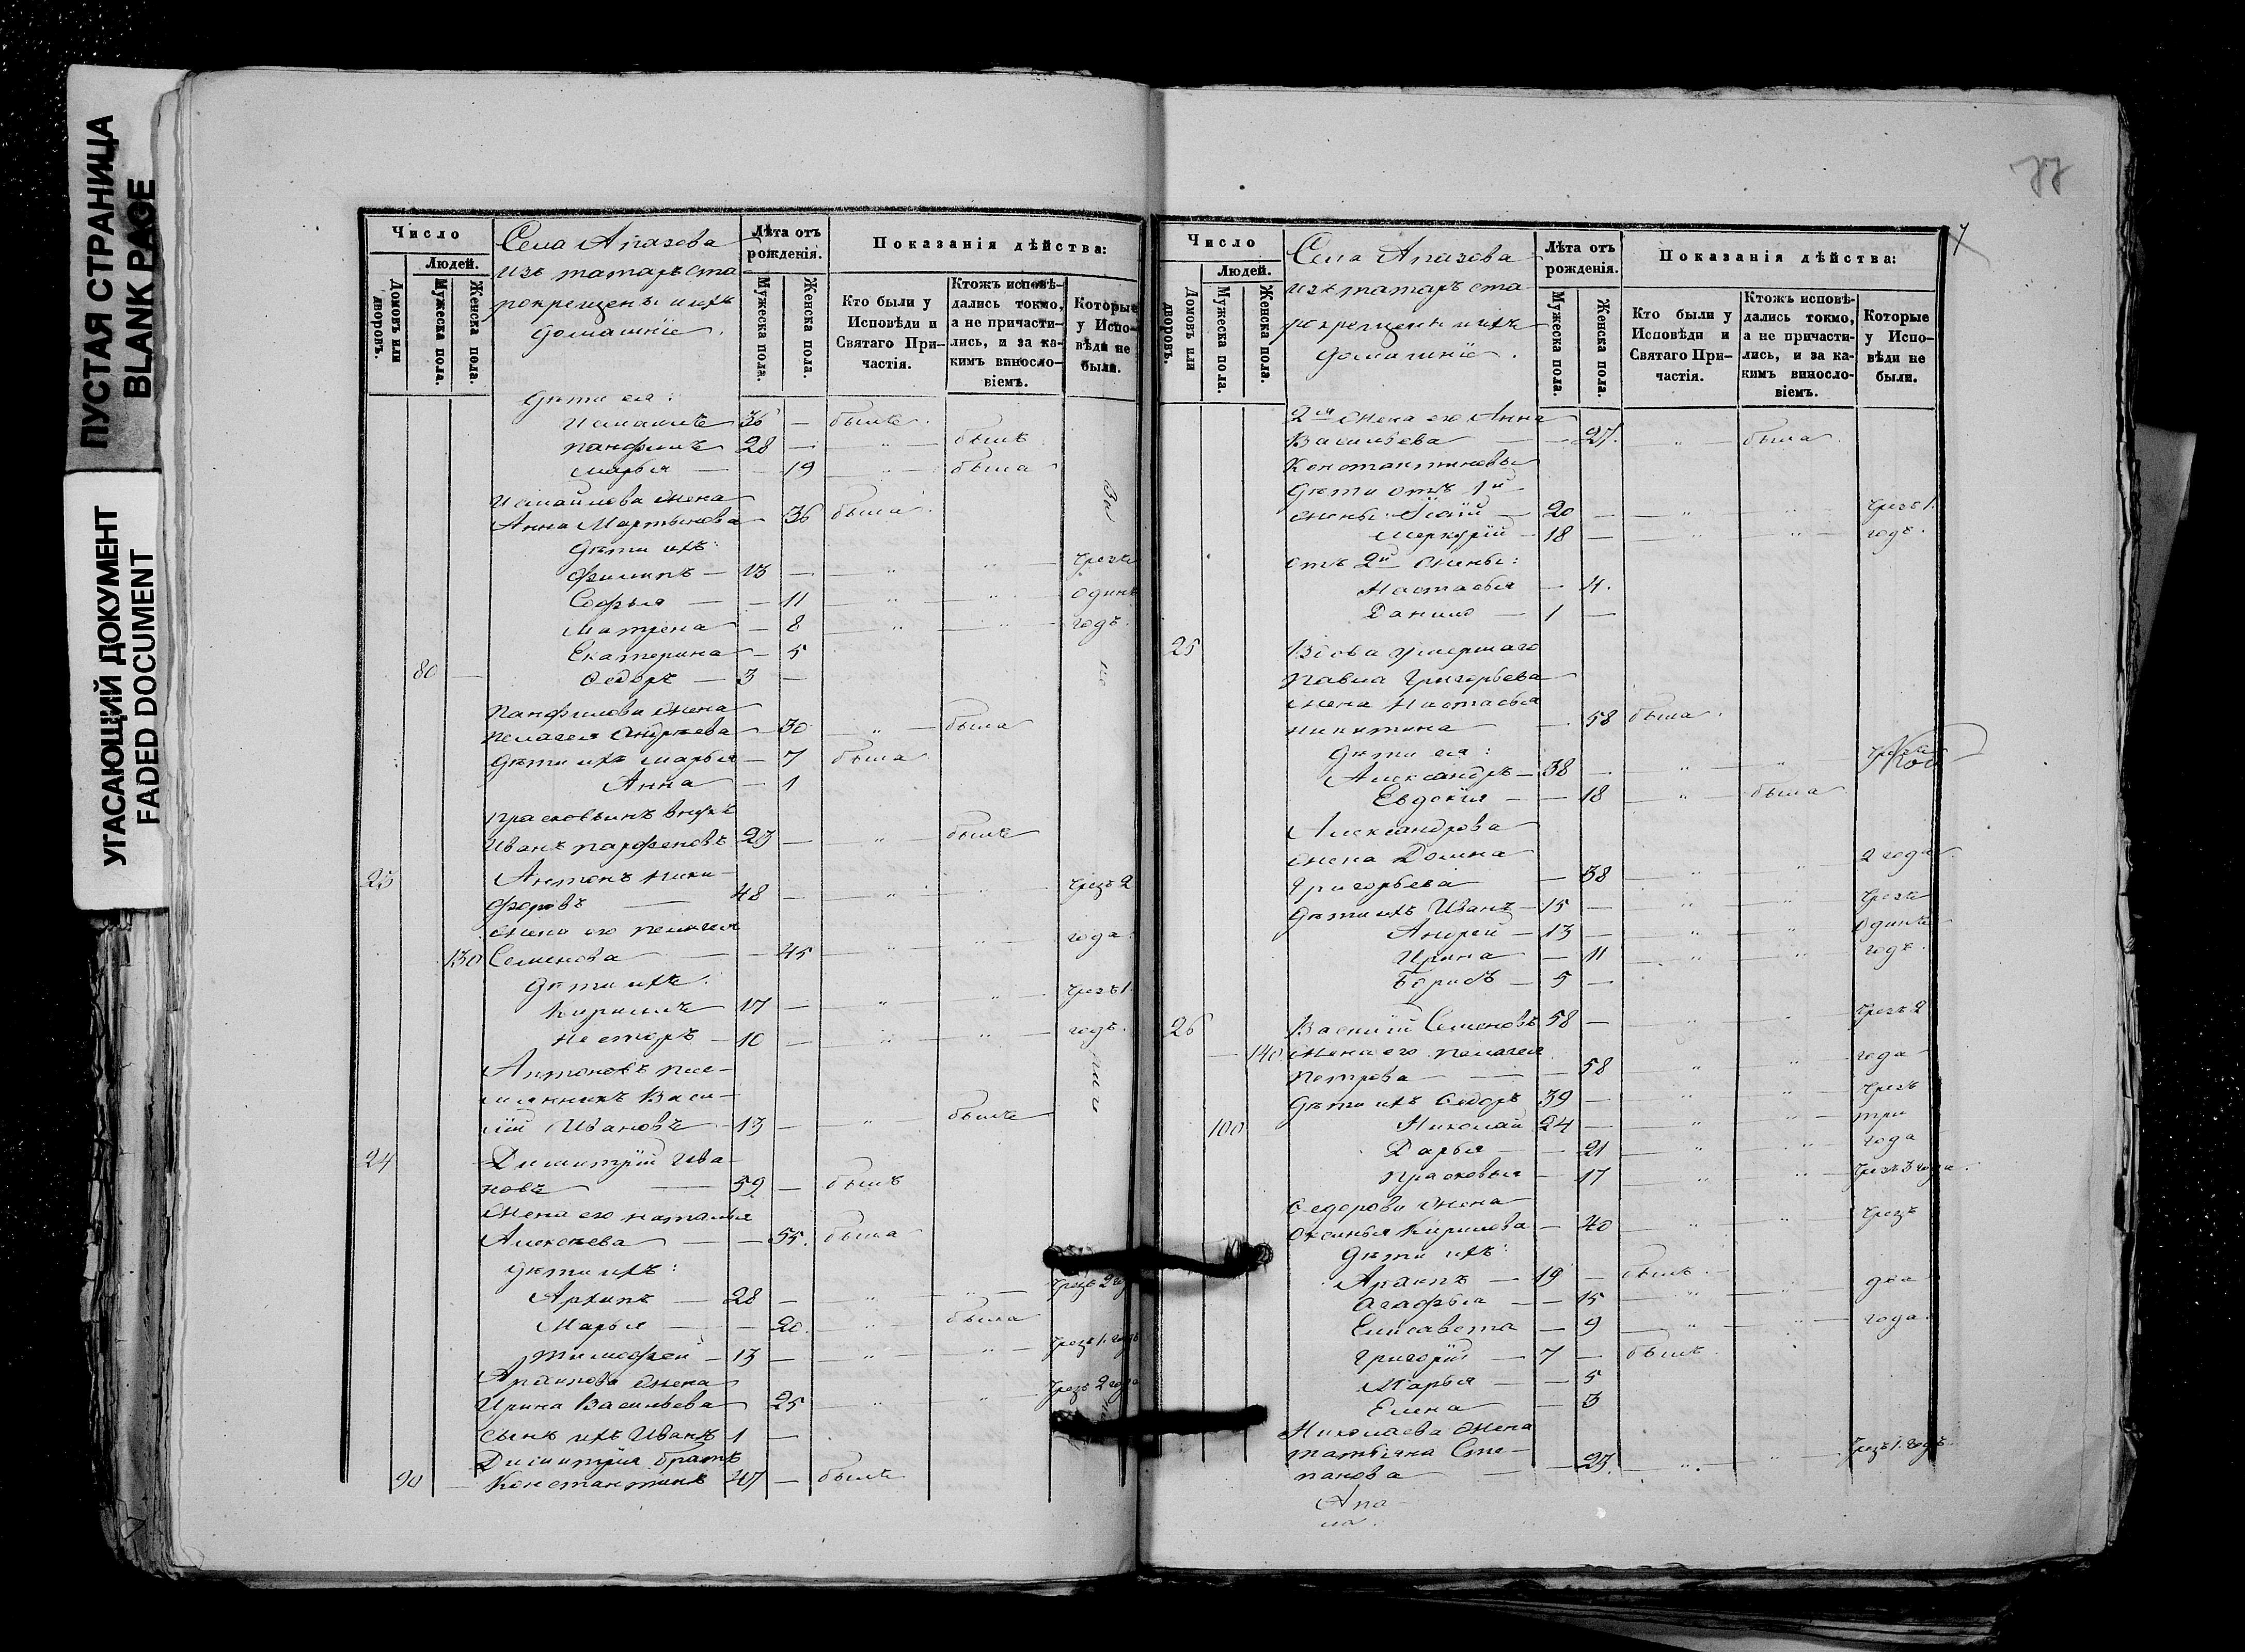 ПУСТАЯ СТРАНИЦА
BLANK PAGE
УГАСАЮЩИЙ ДОКУМЕНТ
FADED DOCUMENT
Число
Людей.
Домовъ или дворовъ.
Мужеска пола.
Женска пола.
Села Апазова
изъ татаръ ста-
рокрещены и ихъ
домашніе.
Лѣта отъ рожденія.
Мужеска пола.
Женска пола.
Показанія дѣйства:
Кто были у Исповѣди и Святаго При-частія.
Ктожъ исповѣ-дались токмо, а не причасти-лись, и за ка-кимъ винослo-віемъ.
Которые у Испо-вѣди не были.
Дѣти ея:
Исмаилъ 36 — былъ.
Панфилъ 28 — " былъ
Марья — 19 — " былa
Исмаилова жена
Анна Мартынова — 36 былa
Дѣти ихъ:
Филипъ — 13 — " " Чрезъ
Софья — 11 — " " одинъ
Матрена — 8 — " " годъ.
Екатерина — 5
80 — Ѳедоръ — 3 —
Панфилова жена
Пелагея Андреева — 30 " была
Дѣти ихъ Марья — 7 была
Анна — 1
Прасковьинъ внукъ
Иванъ Парфеновъ 23 — " былъ
23 Антонъ Ники-
форовъ 48 — " " Чрезъ 2
жена его Пелагея года.
130 Семенова — 45 " "
Дѣти ихъ:
Кирилъ 17 — " " Чрезъ 1.
Несторъ — 10 — " " годъ.
Антоновъ пле-
мянникъ Васи-
лій Ивановъ — 13 — " былъ
24 Димитрій Ива-
новъ 59 — былъ
Жена его Наталья
Алексѣева — 55. была
Дѣти ихъ:
Архипъ — 28 — " " Чрезъ 2 го
Марья — 20. " была
Тимофей — 13 — " " Чрезъ 1. годъ
Архипова жена
Ирина Васильева 25 " " Чрезъ 2 года
Сынъ ихъ Иванъ 1 —
Димитрія братъ
90 — Константинъ 47 — былъ
77
Число
Людей.
Домовъ или дворовъ.
Мужеска пола.
Женска пола.
Села Апазова
изъ татаръ ста-
рокрещены и ихъ
домашніе.
Лѣта отъ рожденія.
Мужеска пола.
Женска пола.
Показанія дѣйства:
Кто были у Исповѣди и Святаго При-частія.
Ктожъ исповѣ-дались токмо, а не причасти-лись, и за ка-кимъ винослo-віемъ.
Которые у Испо-вѣди не были.
2я жена его Анна
Васильева — 27. " была
Константиновы
Дѣти отъ 1й
жены: 20 — " " Чрезъ 1.
Меркурій — 18 — " " годъ.
отъ 2й жены:
Настасья — 4.
Данило — 1 —
25 Вдова умершаго
Павла Григорьева
жена Настасья
Никитина — 58 была.
Дѣти ея:
Александръ — 38 — " " Чрезъ
Евдокія — 18 — " была
Александрова
жена Домна 2 года.
Григорьева — 38 " "
Дѣти ихъ Иванъ — 15 — " " Чрезъ
Андрей — 13 — " " одинъ
Ирина — 11 " " годъ.
Борисъ — 5 —
26 Василій Семеновъ 58 — " " Чрезъ 2
— 140. жена его Пелагея года
Петрова — 58 " "
Дѣти ихъ Ѳедоръ 39 — " " Чрезъ
100 Николай 24 — " " три
Дарья — 21 " " года
Прасковья — 17 " " Чрезъ 3 года.
Ѳедорова жена
Оксинья Кирилова — 40 " " Чрезъ
Дѣти ихъ:
Архипъ — 19 — былъ
Агафья — 15 " " два
Елисавета — 9 " " года.
Григорій — 7 — былъ.
Марья — 5
Елена — 3
Николаева жена
Татьяна Сте-
панова — 23. " " Чрезъ 1. годъ